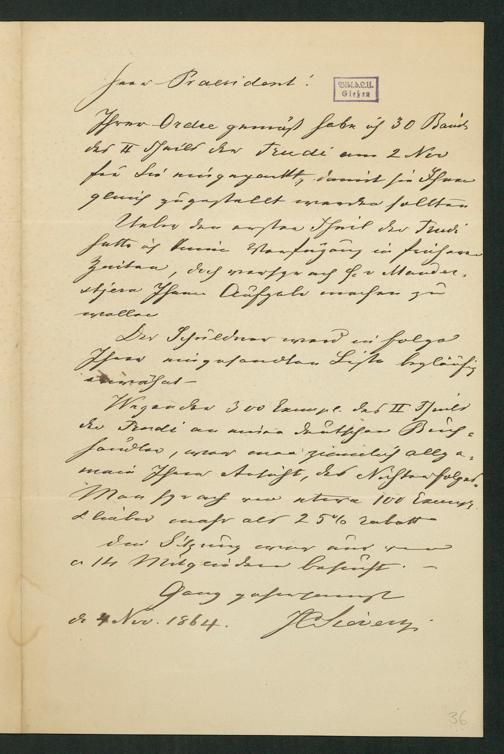 Herr Praesident!
Bibl. d. L. U.
Gießen
Ihrer Ordre gemäß habe ich 30 Bände
des II Theils der Trudi am 2 Nov
für Sie eingepackt, damit sie Ihnen
gleich zugestellt werden sollten
Ueber den ersten Theil der Trudi
hatte ich keine Verfügung in früheren
Zeiten, doch versprach H. v Mander-
stjern Ihnen Aufgabe machen zu
wollen
Der Schuldner ward in folge
Ihrer eingesandten Liste beyläufig
erwähnt –
Wegen der 300 Exempl. des II Theils
der Trudi an einen deutschen Buch-
händler, war man ziemlich allge-
mein Ihrer Ansicht, des Nichterfolges.
Man sprach von etwa 100 Exempl.
& lieber mehr als 25% rabatt
die Sitzung war nur von
a 14 Mitgliedern besucht. –
Ganz gehorsamst
d. 4 Nov. 1864.
JC Sievers.
36